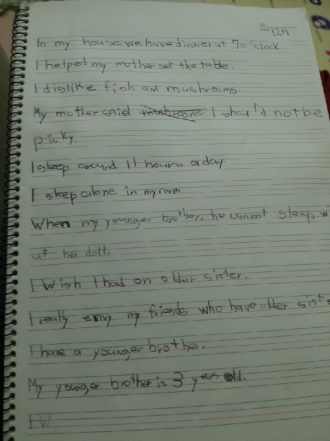 12/4
In my house we have dinner at 7 o'clock
I helped my mother set the table.
I dislike fish and mushrooms
My mother said mushrooms I should not be
picky.
I sleep around 11 hours a day.
I sleep alone in my room
When my younger brother, he cannot sleep wi
ut he doll.
I wish I had on older sister.
I really envy my friends who have older siste
I have a younger brothe.
My younger brother is 3 years old.
I W